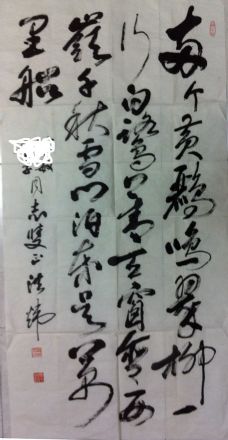 两个黄鸝鳴翠柳一
行白鹭上青天窗含西
嶺千秋雪门泊东吴万
里船
同志 正